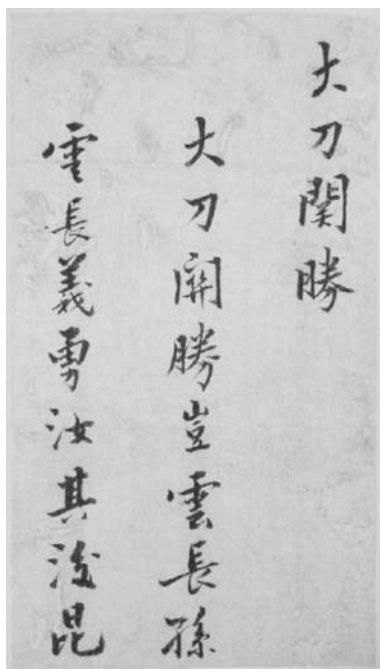 大刀関勝
大刀開勝豈雲長孫
雲長義勇汝其後昆